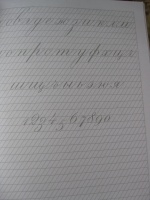 о в г д е ж з и к л м
о п р о т у ф х ц ч
ш щ ъ ы ь э ю я
1 2 3 4 5 6 7 8 9 0